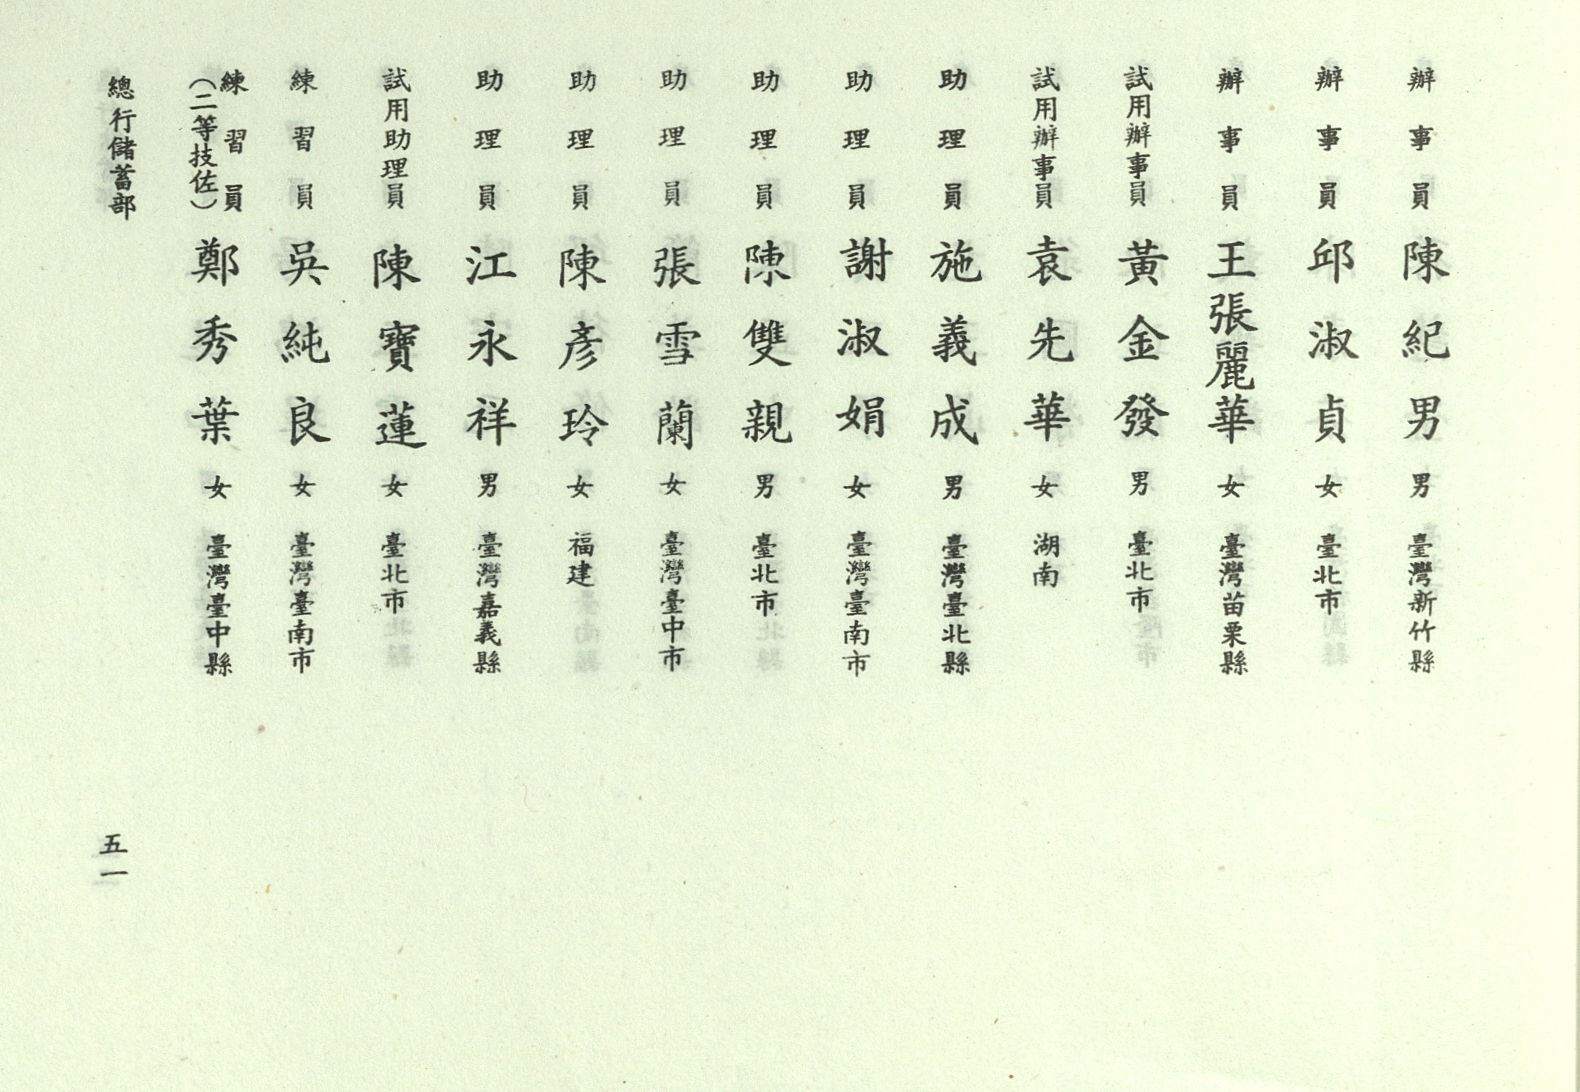 辦事員 陳紀男 男 臺灣新竹縣
辦事員 邱淑貞 女 臺北市
辦事員 王張麗華 女 臺灣苗栗縣
試用辦事員 黃金發 男 臺北市
試用辦事員 袁先華 女 湖南
助理員 施義成 男 臺灣臺北縣
助理員 謝淑娟 女 臺灣臺南市
助理員 陳雙親 男 臺北市
助理員 張雪蘭 女 臺灣臺中市
助理員 陳彥玲 女 福建
助理員 江永祥 男 臺灣嘉義縣
試用助理員 陳寶蓮 女 臺北市
練習員 吳純良 女 臺灣臺南市
練習員（二等技佐） 鄭秀葉 女 臺灣臺中縣
總行儲蓄部 五一